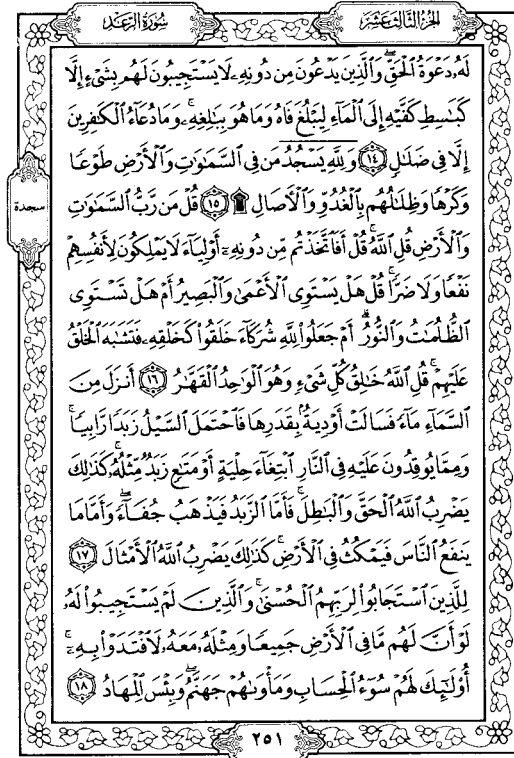 سُورَةُ الرَّعْدِ
الجُزْءُ الثَّالِثَ عَشَرَ
لَهُۥ دَعْوَةُ ٱلْحَقِّ ۖ وَٱلَّذِينَ يَدْعُونَ مِن دُونِهِۦ لَا يَسْتَجِيبُونَ لَهُم بِشَىْءٍ إِلَّا
كَبَٰسِطِ كَفَّيْهِ إِلَى ٱلْمَآءِ لِيَبْلُغَ فَاهُ وَمَا هُوَ بِبَٰلِغِهِۦ ۚ وَمَا دُعَآءُ ٱلْكَٰفِرِينَ
إِلَّا فِى ضَلَٰلٍ ۝١٤ وَلِلَّهِ يَسْجُدُ مَن فِى ٱلسَّمَٰوَٰتِ وَٱلْأَرْضِ طَوْعًا
وَكَرْهًا وَظِلَٰلُهُم بِٱلْغُدُوِّ وَٱلْءَاصَالِ ۩ ۝١٥ قُلْ مَن رَّبُّ ٱلسَّمَٰوَٰتِ
سجدة
وَٱلْأَرْضِ قُلِ ٱللَّهُ ۚ قُلْ أَفَٱتَّخَذْتُم مِّن دُونِهِۦٓ أَوْلِيَآءَ لَا يَمْلِكُونَ لِأَنفُسِهِمْ
نَفْعًا وَلَا ضَرًّا ۚ قُلْ هَلْ يَسْتَوِى ٱلْأَعْمَىٰ وَٱلْبَصِيرُ أَمْ هَلْ تَسْتَوِى
ٱلظُّلُمَٰتُ وَٱلنُّورُ ۗ أَمْ جَعَلُوا۟ لِلَّهِ شُرَكَآءَ خَلَقُوا۟ كَخَلْقِهِۦ فَتَشَٰبَهَ ٱلْخَلْقُ
عَلَيْهِمْ ۚ قُلِ ٱللَّهُ خَٰلِقُ كُلِّ شَىْءٍ وَهُوَ ٱلْوَٰحِدُ ٱلْقَهَّٰرُ ۝١٦ أَنزَلَ مِنَ
ٱلسَّمَآءِ مَآءً فَسَالَتْ أَوْدِيَةٌۢ بِقَدَرِهَا فَٱحْتَمَلَ ٱلسَّيْلُ زَبَدًا رَّابِيًا ۚ
وَمِمَّا يُوقِدُونَ عَلَيْهِ فِى ٱلنَّارِ ٱبْتِغَآءَ حِلْيَةٍ أَوْ مَتَٰعٍ زَبَدٌ مِّثْلُهُۥ ۚ كَذَٰلِكَ
يَضْرِبُ ٱللَّهُ ٱلْحَقَّ وَٱلْبَٰطِلَ ۚ فَأَمَّا ٱلزَّبَدُ فَيَذْهَبُ جُفَآءً ۖ وَأَمَّا مَا
يَنفَعُ ٱلنَّاسَ فَيَمْكُثُ فِى ٱلْأَرْضِ ۚ كَذَٰلِكَ يَضْرِبُ ٱللَّهُ ٱلْأَمْثَالَ ۝١٧
لِلَّذِينَ ٱسْتَجَابُوا۟ لِرَبِّهِمُ ٱلْحُسْنَىٰ ۚ وَٱلَّذِينَ لَمْ يَسْتَجِيبُوا۟ لَهُۥ
لَوْ أَنَّ لَهُم مَّا فِى ٱلْأَرْضِ جَمِيعًا وَمِثْلَهُۥ مَعَهُۥ لَٱفْتَدَوْا۟ بِهِۦٓ ۚ
أُو۟لَٰٓئِكَ لَهُمْ سُوٓءُ ٱلْحِسَابِ وَمَأْوَىٰهُمْ جَهَنَّمُ ۖ وَبِئْسَ ٱلْمِهَادُ ۝١٨
٢٥١